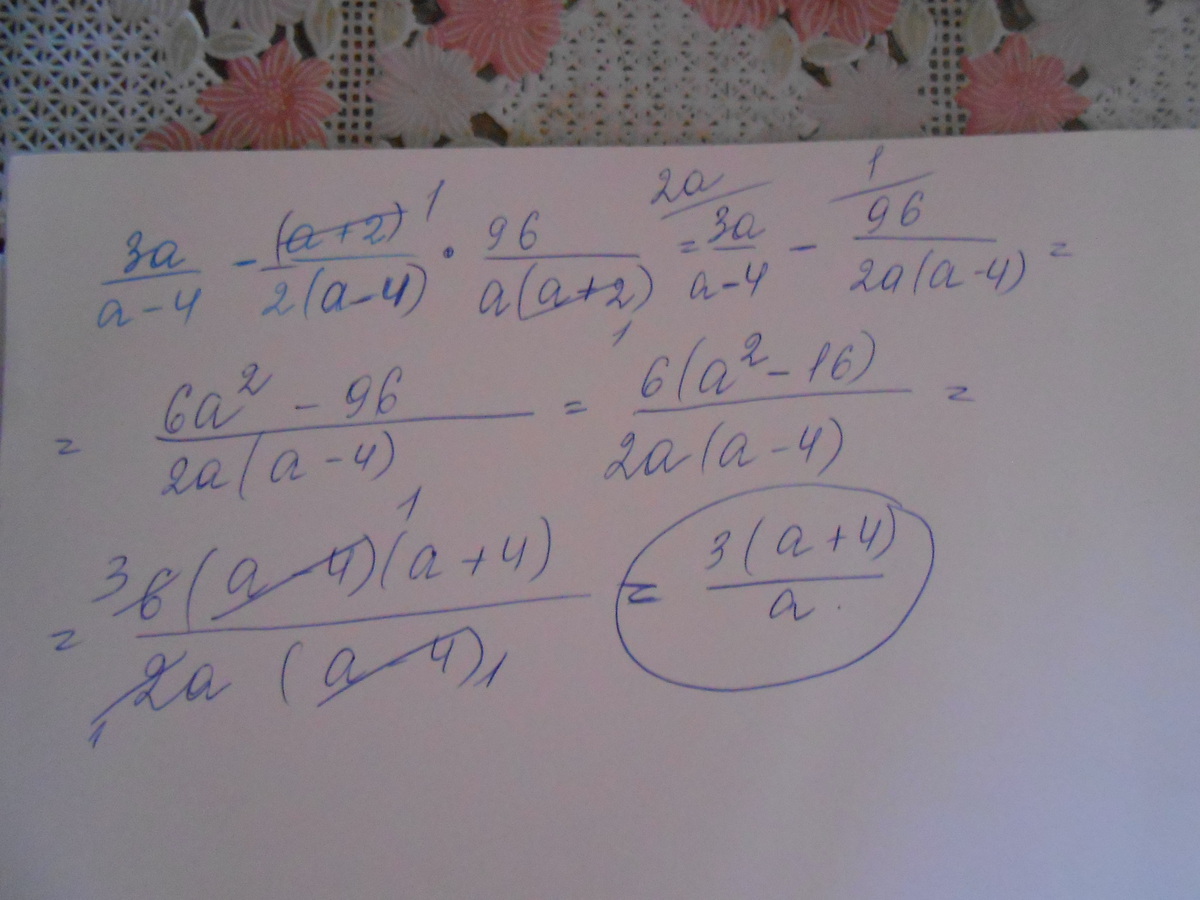 3a/(a-4) - (a+2)¹/2(a-4) · 96/a(a+2)₁ = 3a/(a-4) ⟋2a - 96/2a(a-4) ⟋1 =
= (6a² - 96)/2a(a-4) = 6(a² - 16)/2a(a-4) =
= ³6(a-4)¹(a+4)/₁2a(a-4)₁ = 3(a+4)/a